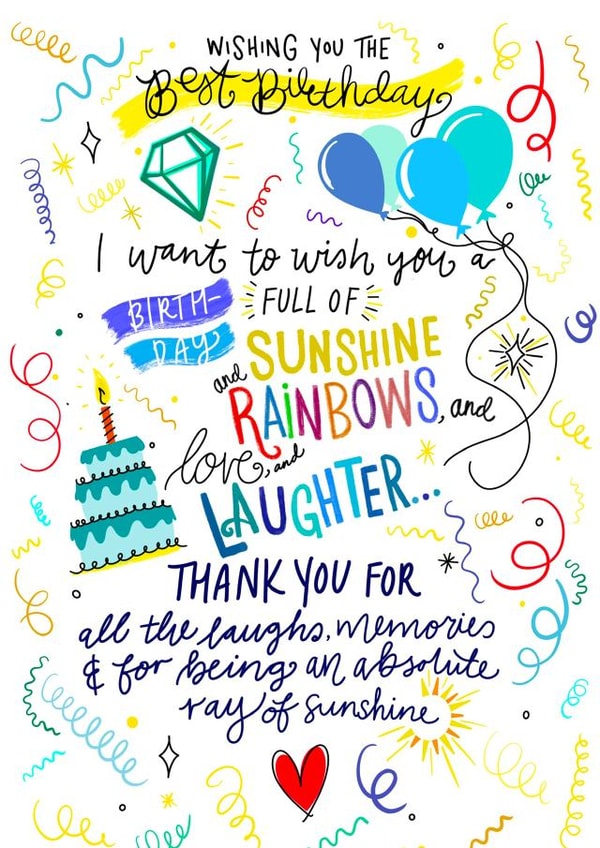 WISHING YOU THE
Best Birthday
I want to wish you a
BIRTH-
DAY
FULL OF
SUNSHINE
and
RAINBOWS, and
love, and
LAUGHTER...
THANK YOU FOR
all the laughs, memories
& for being an absolute
ray of sunshine